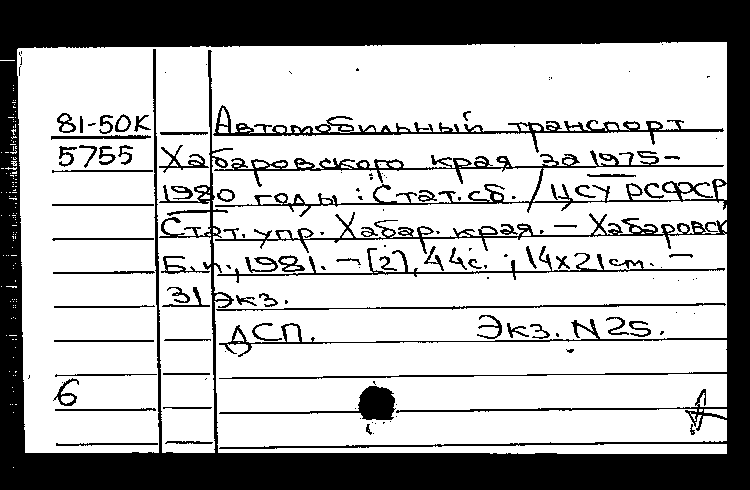 81-50К Автомобильный транспорт
5755 Хабаровского края за 1975-
1980 годы : Стат. сб. / ЦСУ РСФСР,
Стат. упр. Хабар. края. – Хабаровск
Б.и., 1981. – [2], 44с. ; 14х21 cm. –
31 экз.
ДСП. Экз. N 25.
6